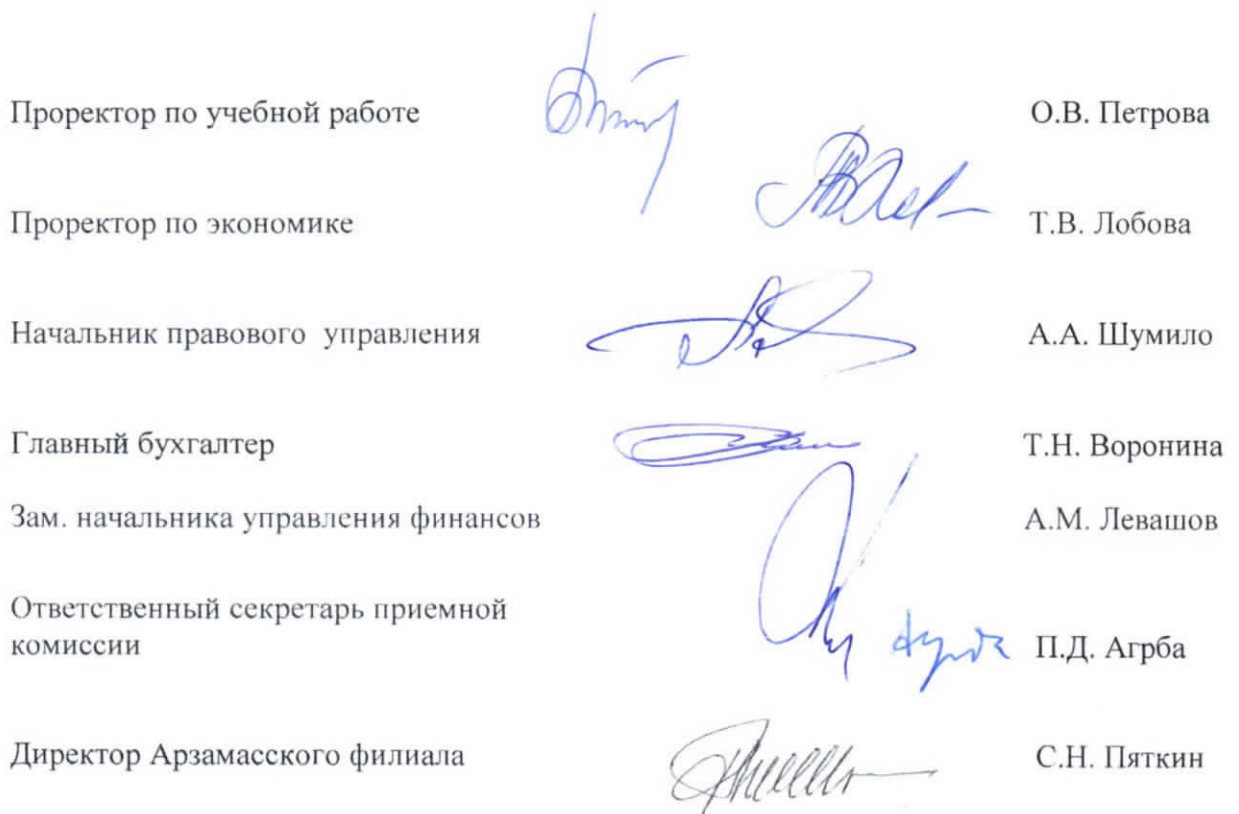 Проректор по учебной работе О.В. Петрова
Проректор по экономике Т.В. Лобова
Начальник правового управления А.А. Шумило
Главный бухгалтер Т.Н. Воронина
Зам. начальника управления финансов А.М. Левашов
Ответственный секретарь приемной
комиссии П.Д. Агрба
Директор Арзамасского филиала С.Н. Пяткин